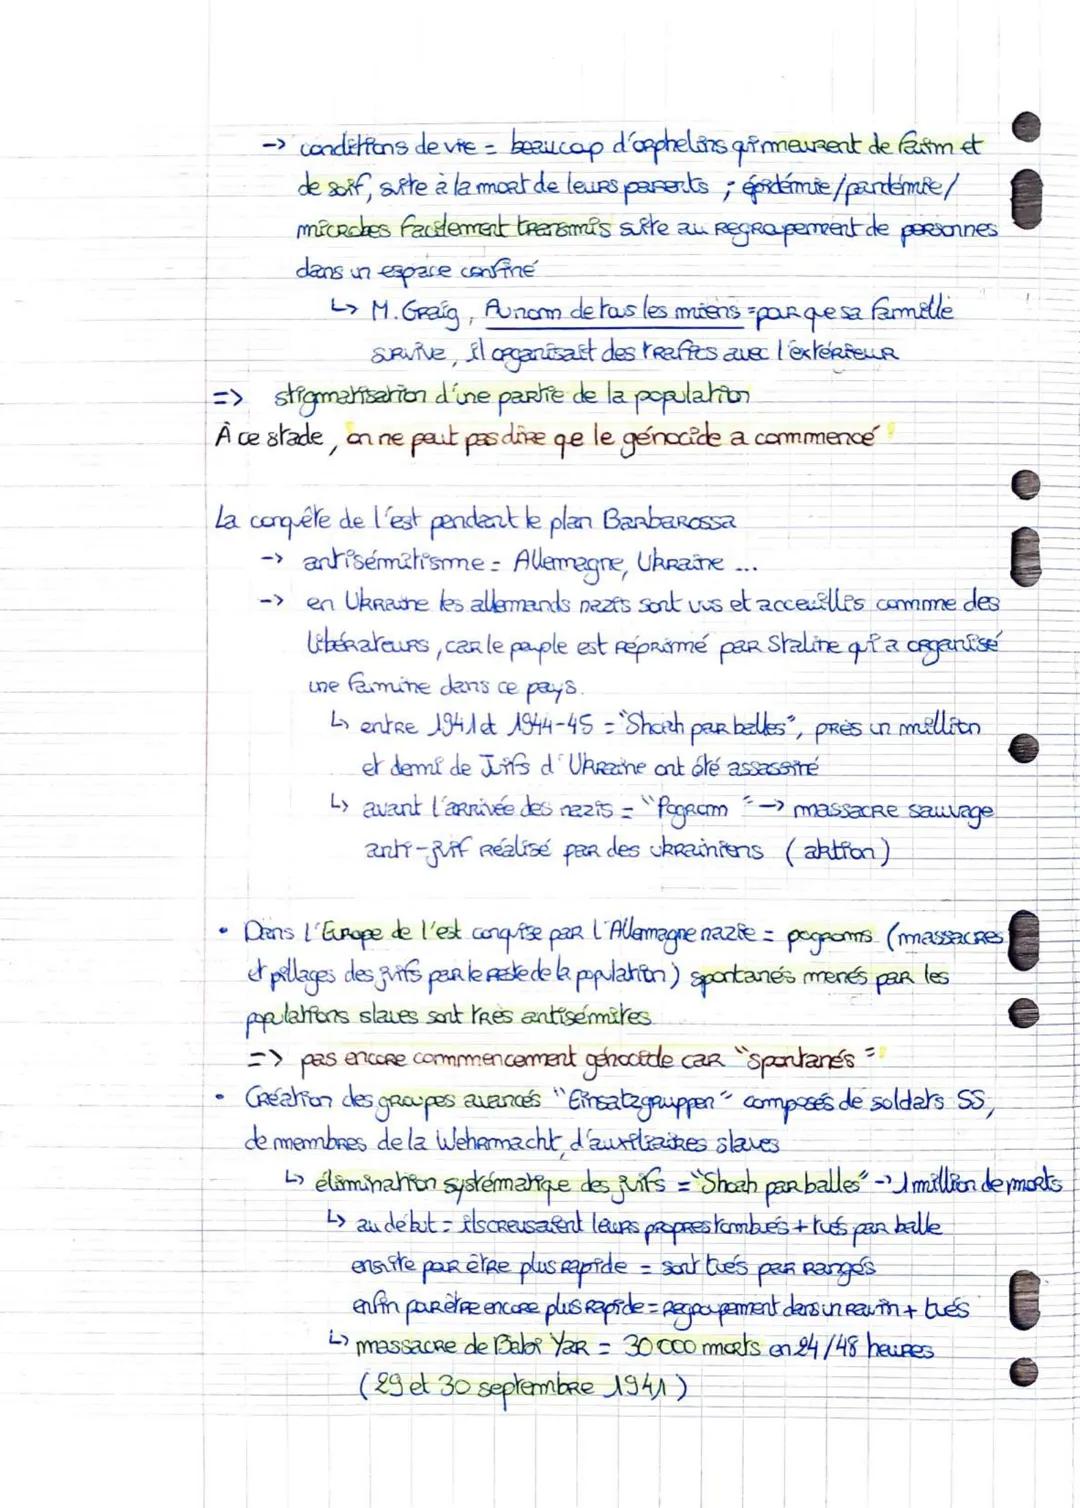 -> conditions de vie = beaucoup d'orphelins qui meurent de faim et
de soif, suite à la mort de leurs parents ; épidémie/pandémie/
microbes facilement transmis suite au regroupement de personnes
dans un espace confiné
↳ M. Graig, Au nom de tous les miens = pour que sa famille
survive, il organisait des trafics avec l'extérieur
=> stigmatisation d'une partie de la population
À ce stade, on ne peut pas dire que le génocide a commencé !
La conquête de l'est pendant le plan Barbarossa
-> antisémitisme = Allemagne, Ukraine ...
-> en Ukraine les allemands nazis sont vus et acceuillis comme des
libérateurs, car le peuple est réprimé par Staline qui a organisé
une famine dans ce pays.
↳ entre 1941 et 1944-45 = "Shoah par balles", près un million
et demi de Juifs d'Ukraine ont été assassiné
↳ avant l'arrivée des nazis = "Pogrom" -> massacre sauvage
anti-juif réalisé par des ukrainiens (aktion)
• Dans l'Europe de l'est conquise par l'Allemagne nazie = pogroms (massacres
et pillages des juifs par le reste de la population) spontanés menés par les
populations slaves sont très antisémites
=> pas encore commencement génocide car "spontanés" !
• Création des groupes avancés "Einsatzgruppen" composés de soldats SS,
de membres de la Wehrmacht, d'auxiliaires slaves
↳ élimination systématique des juifs = "Shoah par balles" -> 1 million de morts
↳ au début = ils creusaient leurs propres tombes + tués par balle
ensuite pour être plus rapide = sont tués par rangés
enfin pour être encore plus rapide = regroupement dans un ravin + tués
↳ massacre de Babi Yar = 30 000 morts en 24/48 heures
(29 et 30 septembre 1941)